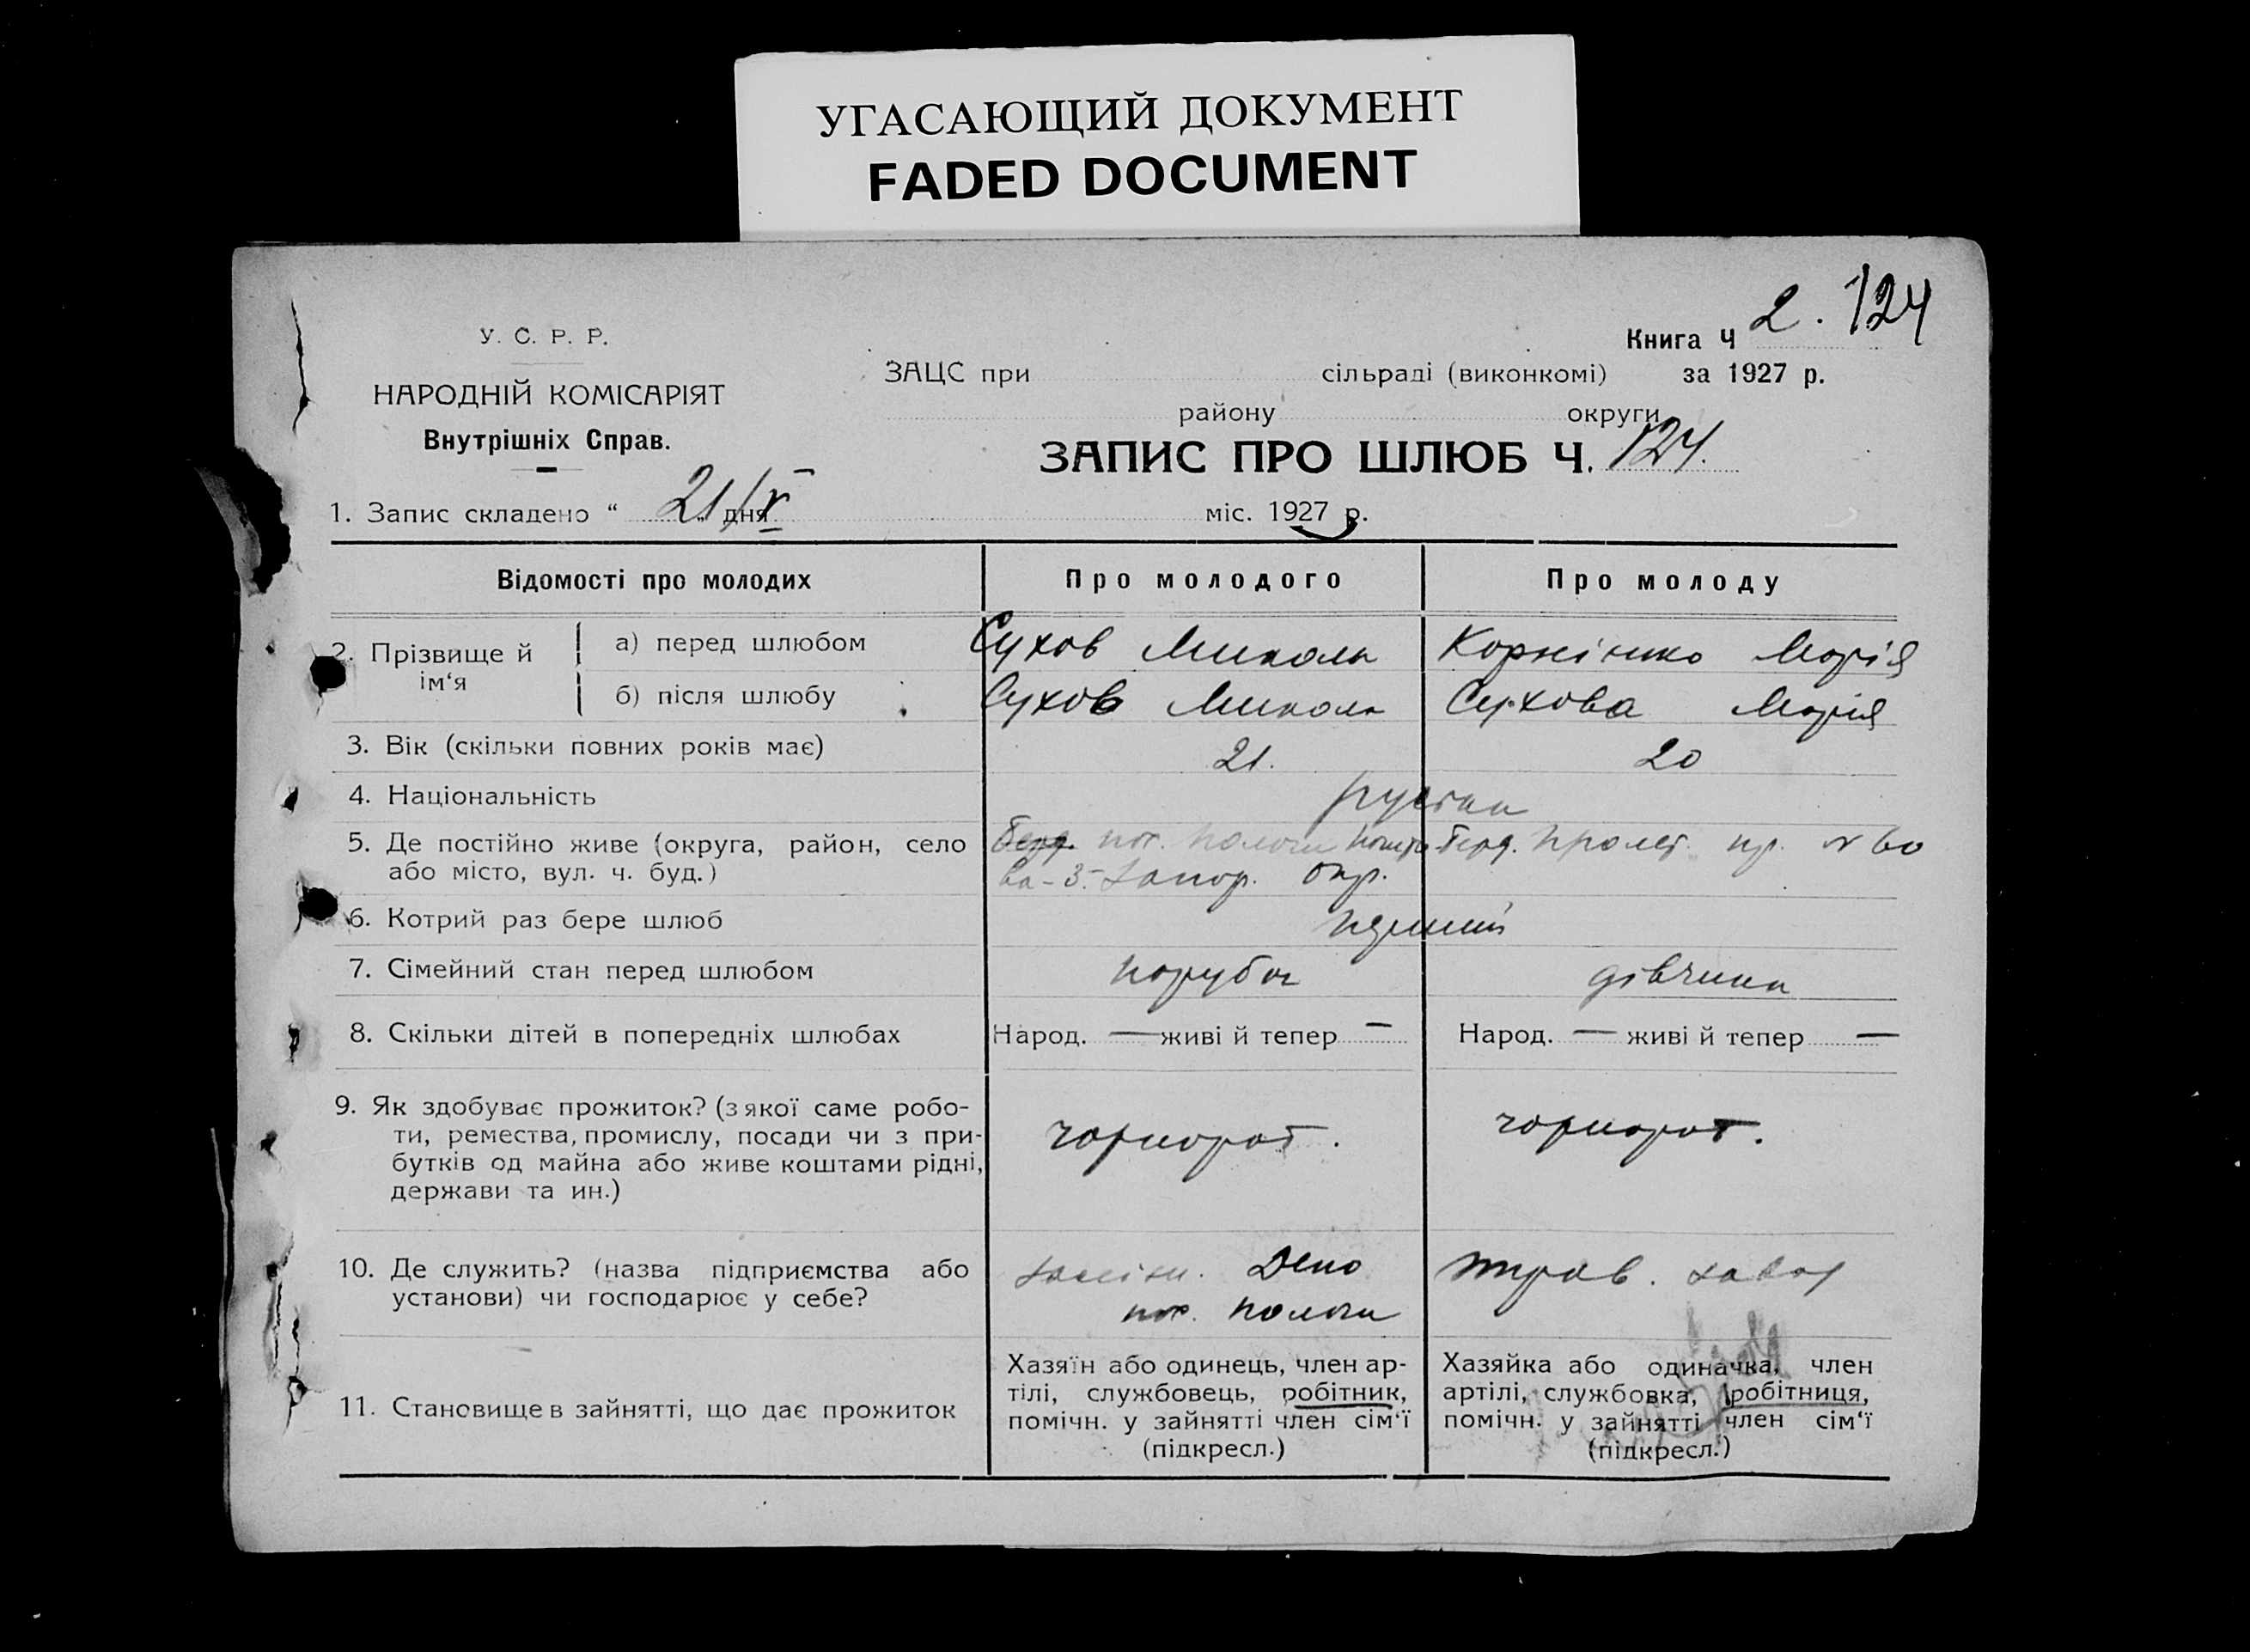 УГАСАЮЩИЙ ДОКУМЕНТ
FADED DOCUMENT
У. С. Р. Р.
НАРОДНІЙ КОМІСАРІЯТ
Внутрішніх Справ.
Книга Ч 2. 124
ЗАЦС при сільраді (виконкомі) за 1927 р.
району округи
ЗАПИС ПРО ШЛЮБ Ч. 124.
1. Запис складено “ 21/V „ дня міс. 1927 р.
Відомості про молодих Про молодого Про молоду
2. Прізвище й ім‘я
а) перед шлюбом Сухов Микола Марія
б) після шлюбу Сухов Микола Сухова Марія
3. Вік (скільки повних років має) 21. 20
4. Національність
5. Де постійно живе (округа, район, село Пролет. № 60
або місто, вул. ч. буд.) Запор. Окр.
6. Котрий раз бере шлюб
7. Сімейний стан перед шлюбом парубок дівчина
8. Скільки дітей в попередніх шлюбах Народ. — живі й тепер — Народ. — живі й тепер —
9. Як здобуває прожиток? (з якої саме робо-
ти, ремества, промислу, посади чи з при-
бутків од майна або живе коштами рідні, чорнороб. чорнороб.
держави та ин.)
10. Де служить? (назва підприємства або Депо завод
установи) чи господарює у себе? Пологи
11. Становище в зайнятті, що дає прожиток
Хазяїн або одинець, член ар-
тілі, службовець, робітник,
помічн. у зайнятті член сім‘ї
(підкресл.)
Хазяйка або одиначка, член
артілі, службовка, робітниця,
помічн. у зайнятті член сім‘ї
(підкресл.)